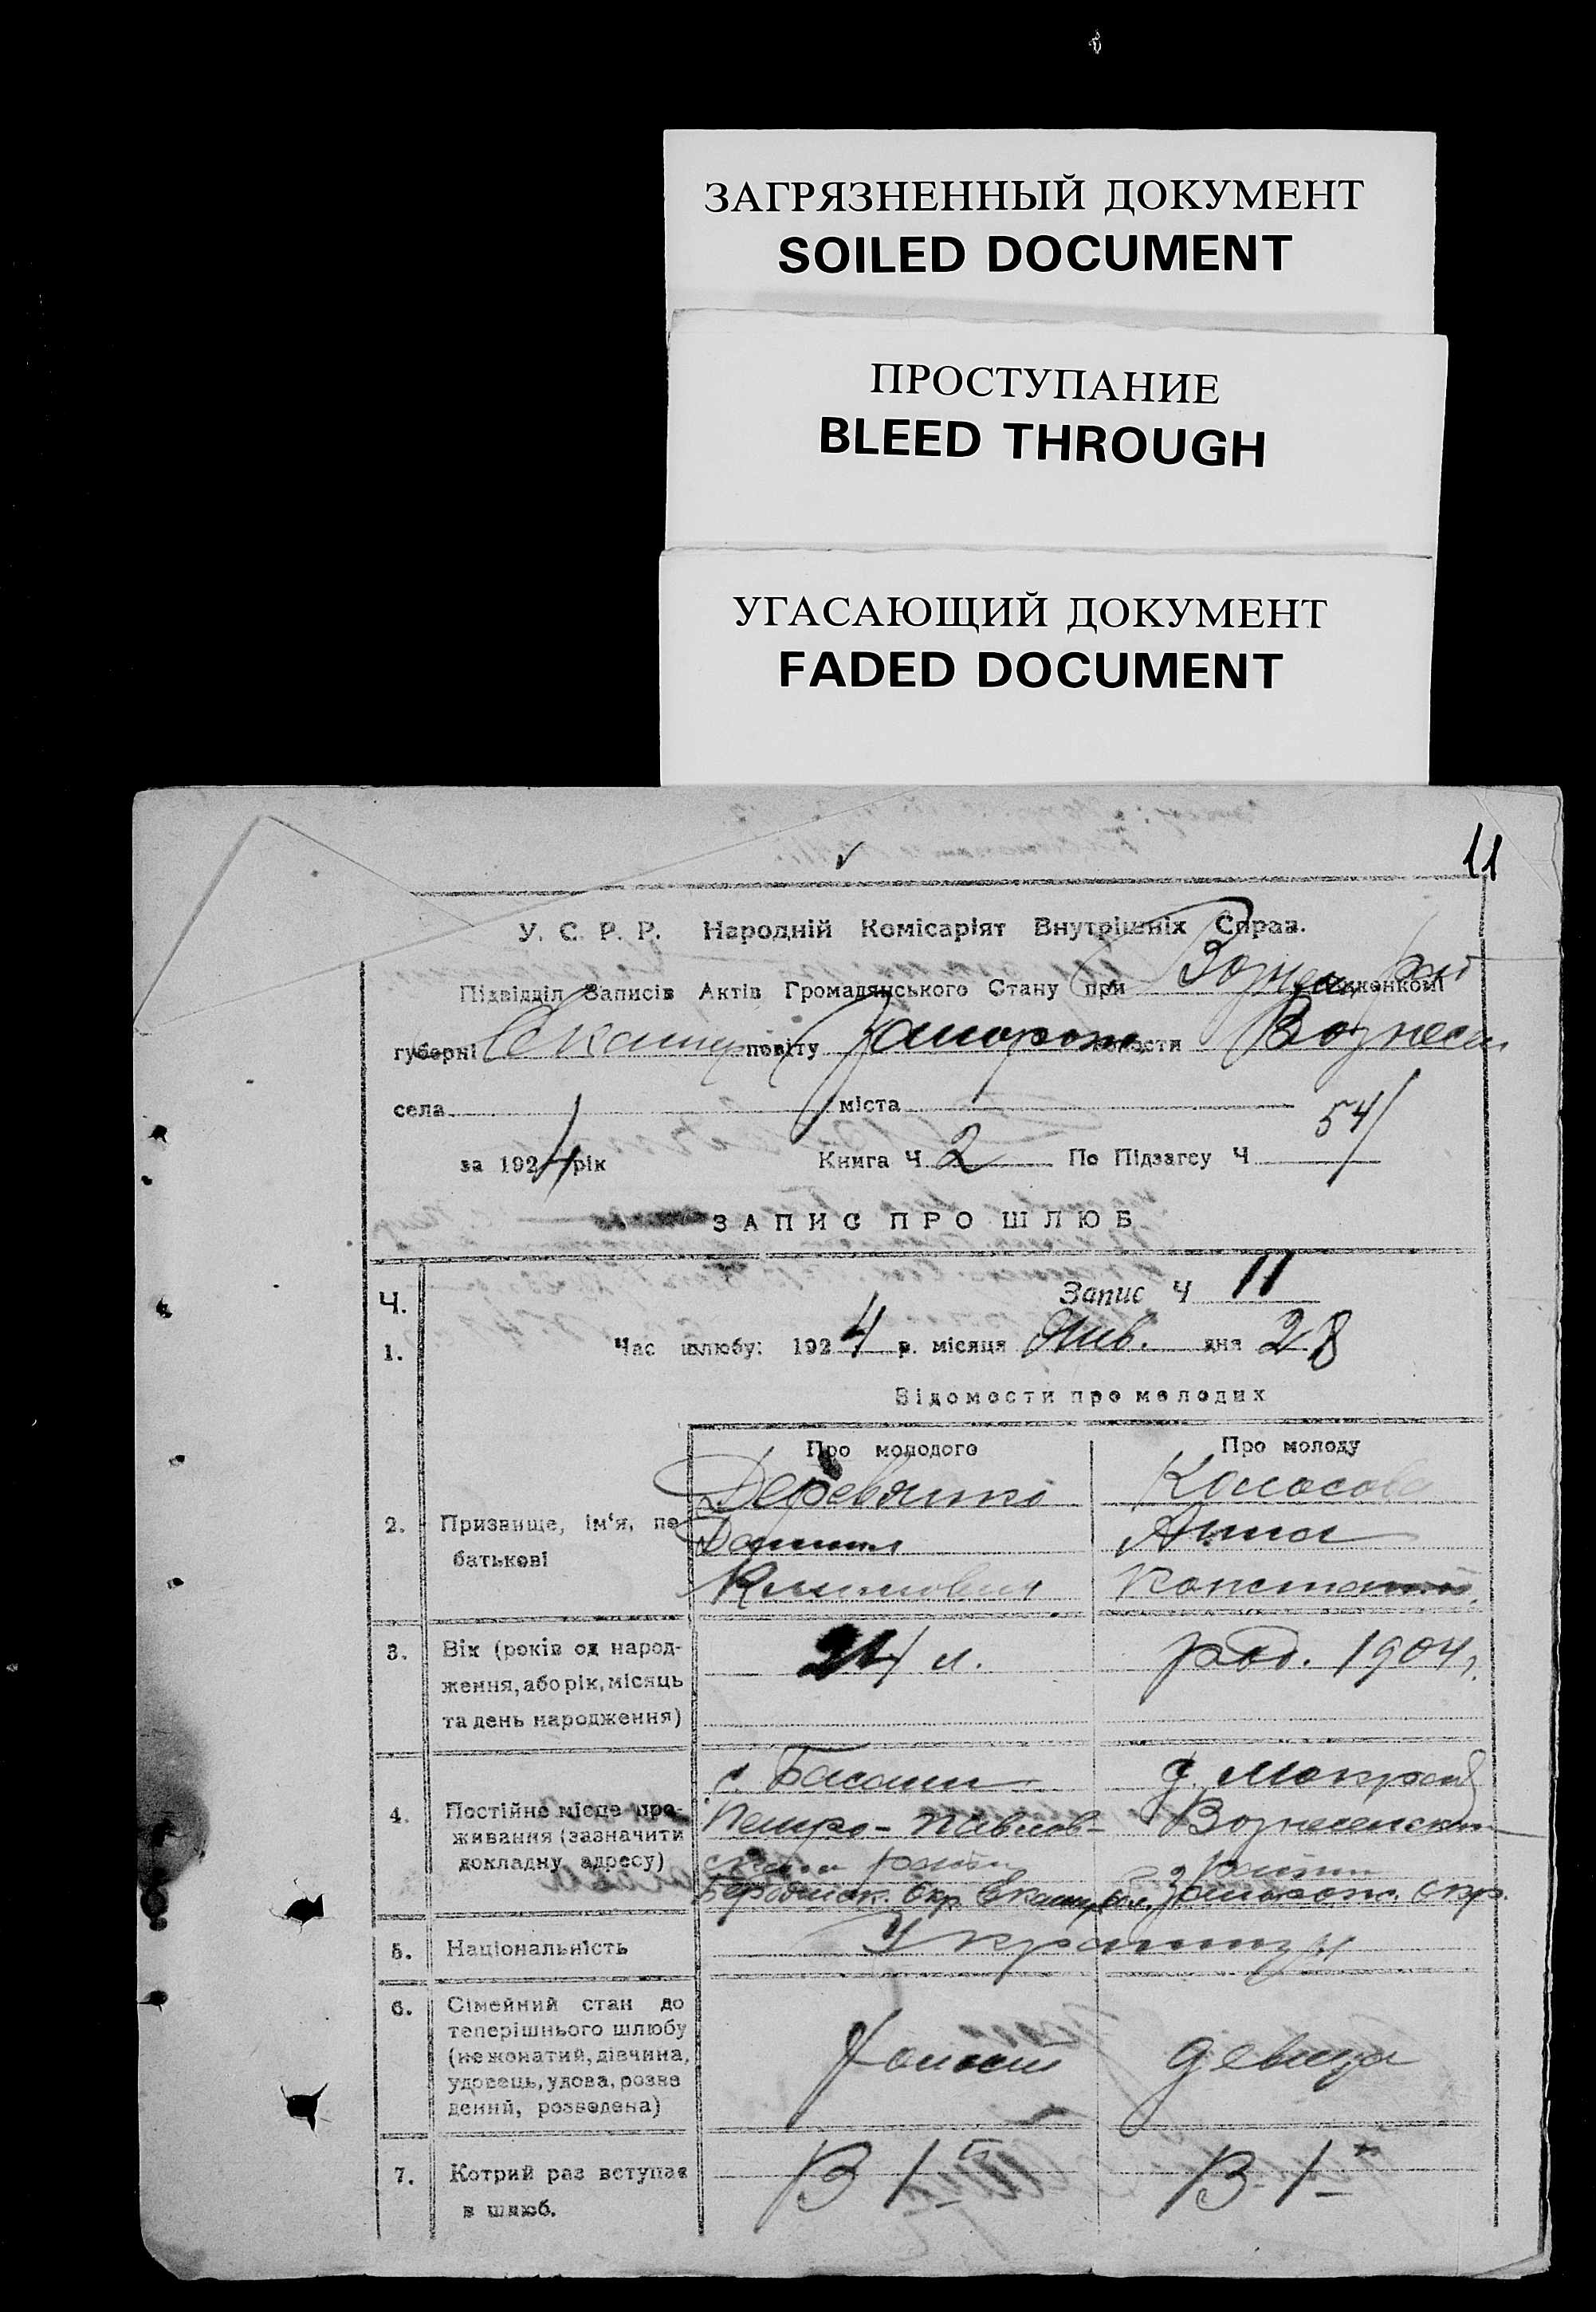 ЗАГРЯЗНЕННЫЙ ДОКУМЕНТ
SOILED DOCUMENT
ПРОСТУПАНИЕ
BLEED THROUGH
УГАСАЮЩИЙ ДОКУМЕНТ
FADED DOCUMENT
11
У. С. Р. Р. Народній Комісаріят Внутрішніх Справ.
Підвідділ Записів Актів Громадянського Стану при Вознесен. Рай виконкомі
губерні Екатер повіту Запорож. волости Вознесен
села міста
за 1924 рік Книга Ч 2 По Підзагсу Ч 54
ЗАПИС ПРО ШЛЮБ
Ч. Запис Ч 11
1. Час шлюбу: 1924 р. місяця Янв. дня 28
Відомости про молодих
Про молодого Про молоду
Деревянко Колосова
2. Призвище, ім'я, по Даниил Анна
батькові
Климович Констант.
3. Вік (років од народ- 24 л. род. 1904 г.
ження, або рік, місяць
та день народження)
с. Басань д. Мокрая
4. Постійне місце про- Петро-Павлов- Вознесенской
живання (зазначити
докладну адресу) ского района района
Бердянск. Окр. Екатер. Запорож. Окр.
5. Національність Украинцы
6. Сімейний стан до
теперішнього шлюбу
(не жонатий, дівчина, Холост девица
удовець, удова, розве
дений, розведена)
7. Котрий раз вступає В 1й В 1й
в шлюб.